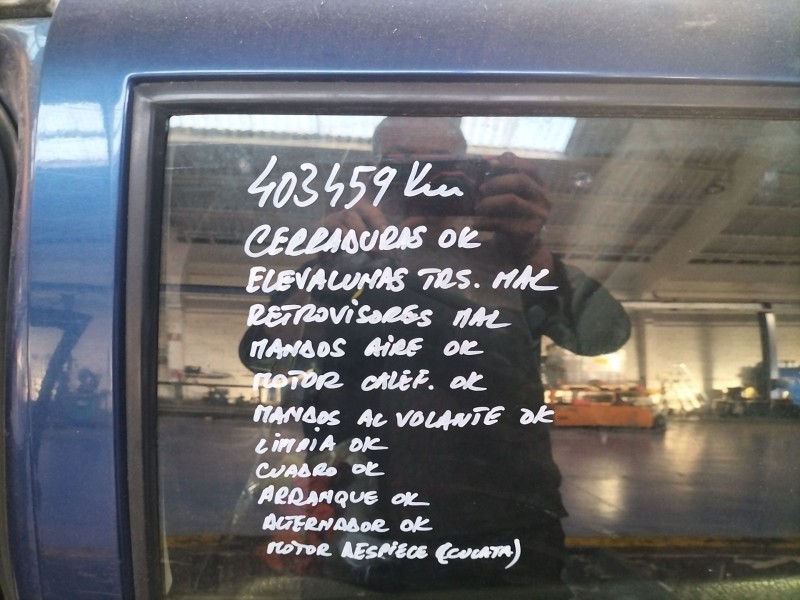 403459 Km
CERRADURAS OK
ELEVALUNAS TRS. MAL
RETROVISORES MAL
MANDOS AIRE OK
MOTOR CALEF. OK
MANDOS AL VOLANTE OK
LIMPIA OK
CUADRO OK
ARRANQUE OK
ALTERNADOR OK
MOTOR DESPIECE (CULATA)